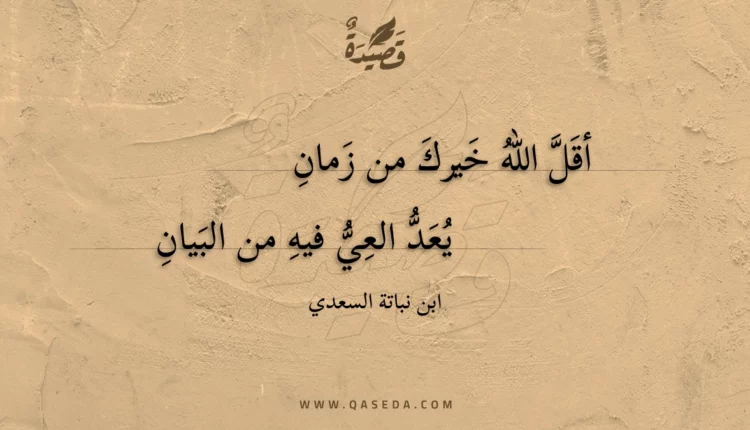 قَصِيْدَةٌ
أقَلَّ اللهُ خَيركَ من زَمانِ
يُعَدُّ العِيُّ فيهِ من البَيانِ
ابن نباتة السعدي
WWW.QASEDA.COM